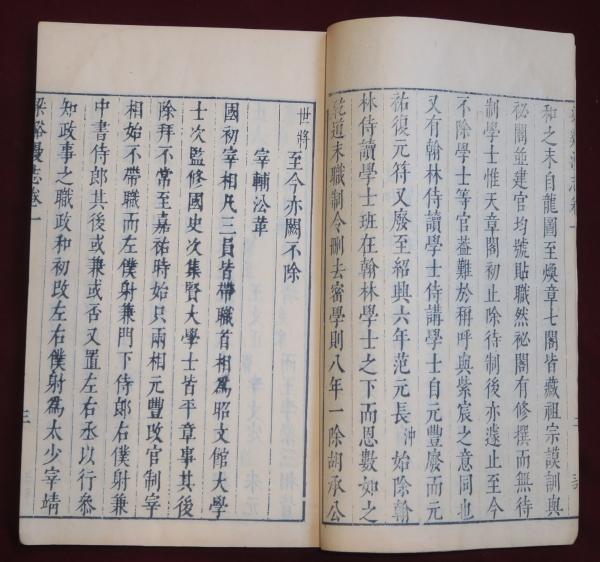 和之末自龍圖至煥章七閣皆藏祖宗謨訓與
祕閣並建官均號貼職然祕閣有修撰而無待
制學士惟天章閣初止除待制後亦遽止至今
不除學士等官蓋難於稱呼與紫宸之意同也
又有翰林侍讀學士侍講學士自元豐廢而元
祐復元符又廢至紹興六年范元長沖始除翰
林侍讀學士班在翰林學士之下而恩數如之
乾道末職制令刪去密學則八年一除胡承公
世將
至今亦闕不除
宰輔沿革
國初宰相凡三員皆帶職首相爲昭文館大學
士次監修國史次集賢大學士皆平章事其後
除拜不常至嘉祐時始只兩相元豐改官制宰
相始不帶職而左僕射兼門下侍郎右僕射兼
中書侍郎其後或兼或否又置左右丞以行參
知政事之職政和初改左右僕射爲太少宰靖
梁谿漫志卷一
三